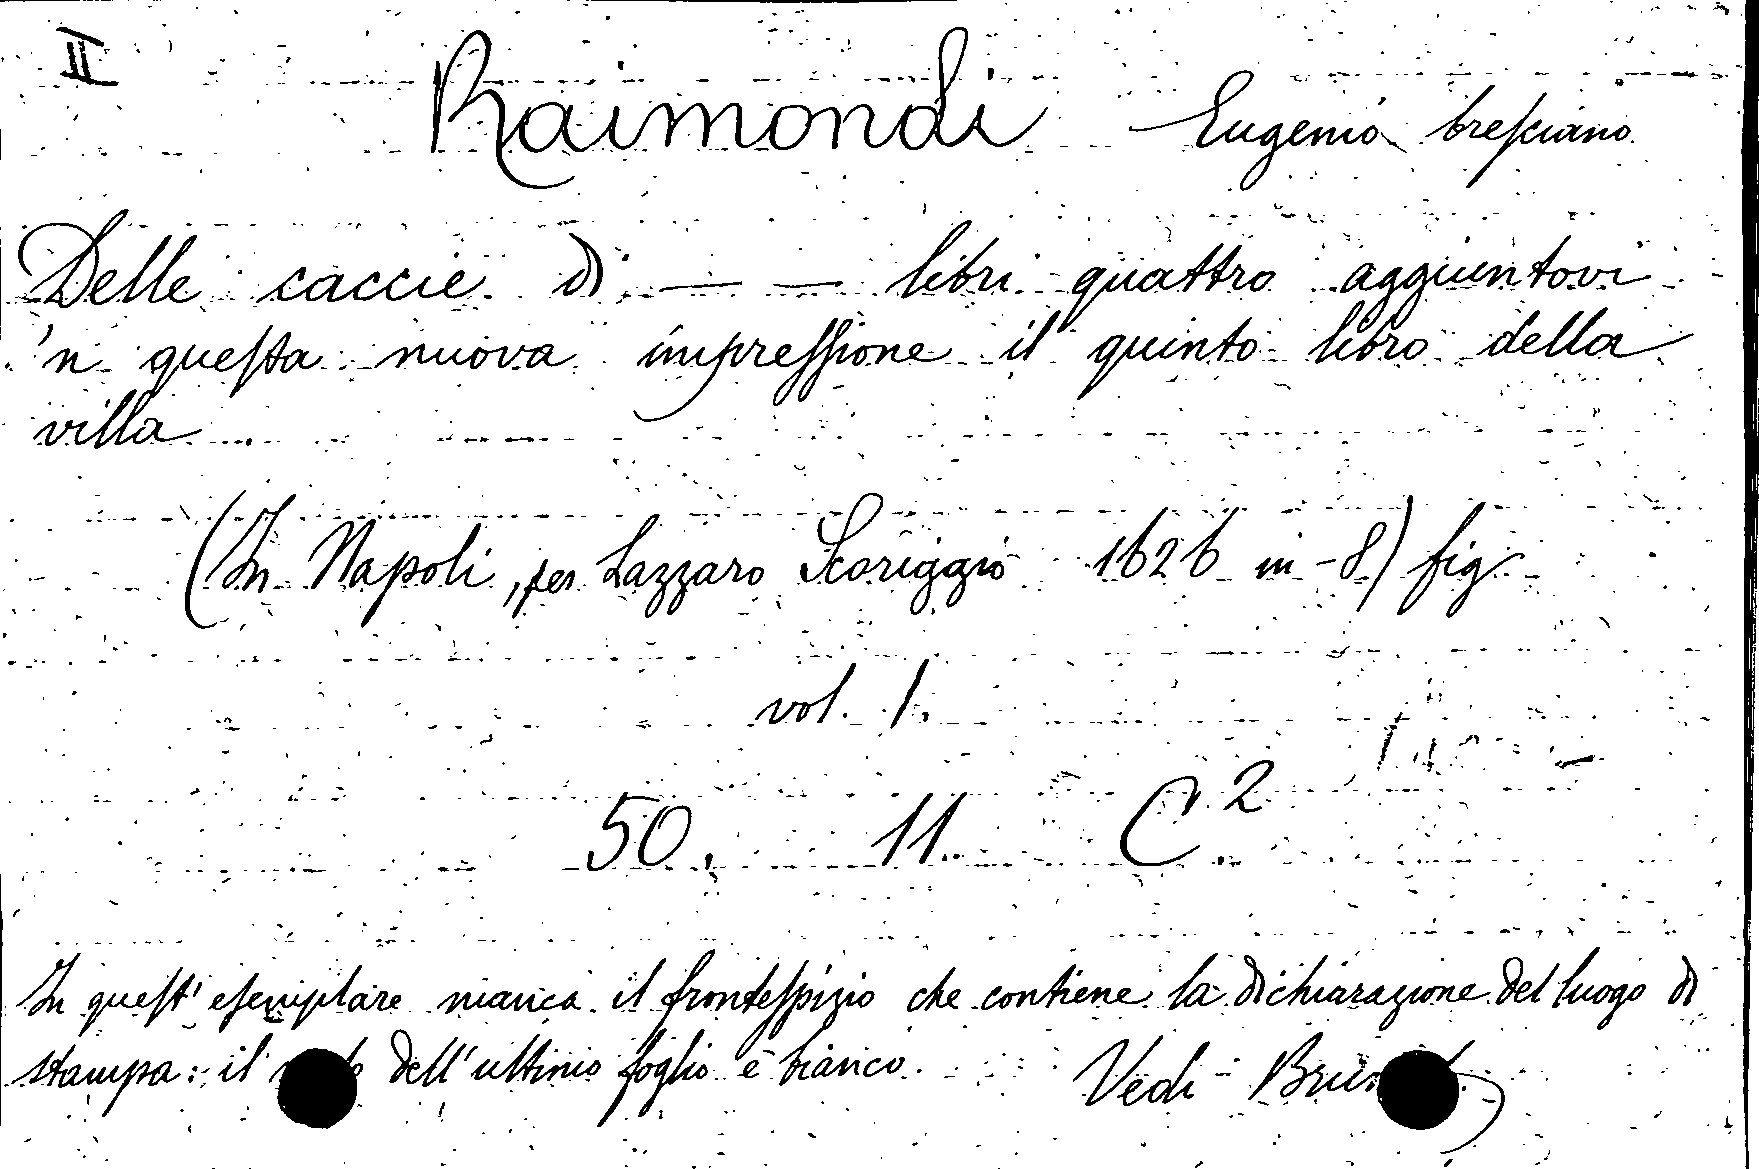 II
Raimondi Eugenio bresciano
Delle caccie di — — libri quattro aggiuntovi
'n questa nuova impressione il quinto libro della
villa
(In Napoli, per Lazzaro Scoriggio 1626 in-8) fig
vol. 1.
50. 11. C.2
In quest' esemplare manca il frontespizio che contiene la dichiarazione del luogo di
stampa: il dell' ultimo foglio è bianco. Vedi Brun